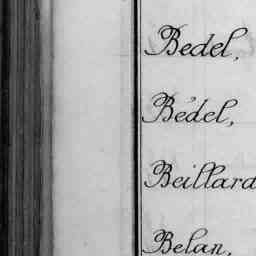 Bedel,
Bédel,
Beillard
Belan,